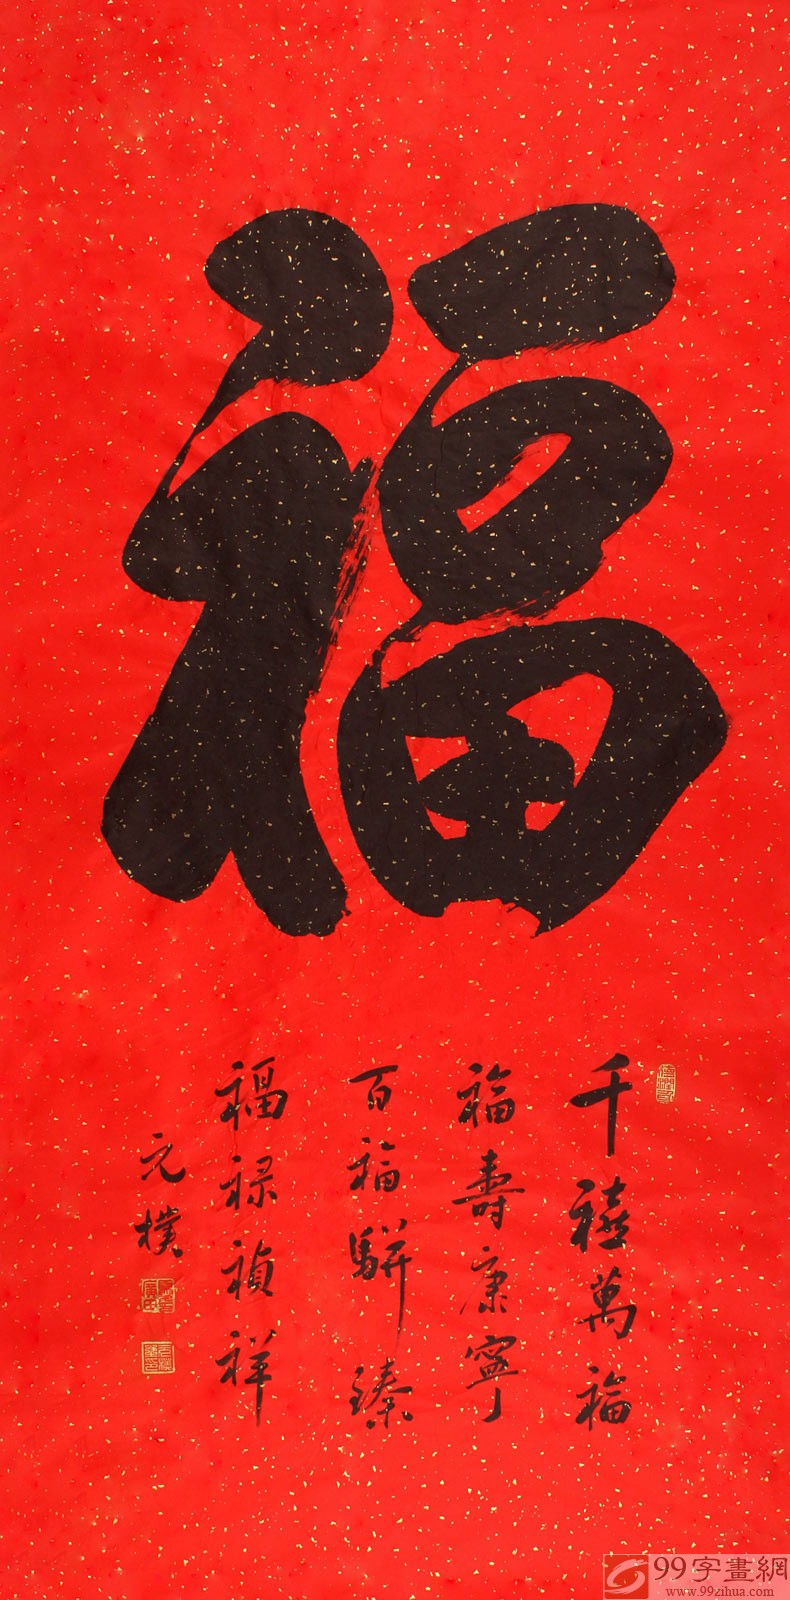 福
千禧萬福
福壽康寧
百福駢臻
福禄禎祥
元樸
99字畫網
www.99zihua.com